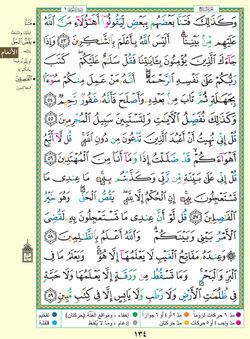 وَكَذَٰلِكَ فَتَنَّا بَعْضَهُم بِبَعْضٍ لِّيَقُولُوٓا۟ أَهَٰٓؤُلَآءِ مَنَّ ٱللَّهُ
عَلَيْهِم مِّنۢ بَيْنِنَآ ۗ أَلَيْسَ ٱللَّهُ بِأَعْلَمَ بِٱلشَّٰكِرِينَ ٥٣ وَإِذَا
جَآءَكَ ٱلَّذِينَ يُؤْمِنُونَ بِـَٔايَٰتِنَا فَقُلْ سَلَٰمٌ عَلَيْكُمْ ۖ كَتَبَ
رَبُّكُمْ عَلَىٰ نَفْسِهِ ٱلرَّحْمَةَ ۖ أَنَّهُۥ مَنْ عَمِلَ مِنكُمْ سُوٓءًۢا
بِجَهَٰلَةٍ ثُمَّ تَابَ مِنۢ بَعْدِهِۦ وَأَصْلَحَ فَأَنَّهُۥ غَفُورٌ رَّحِيمٌ ٥٤
وَكَذَٰلِكَ نُفَصِّلُ ٱلْـَٔايَٰتِ وَلِتَسْتَبِينَ سَبِيلُ ٱلْمُجْرِمِينَ ٥٥
قُلْ إِنِّى نُهِيتُ أَنْ أَعْبُدَ ٱلَّذِينَ تَدْعُونَ مِن دُونِ ٱللَّهِ ۚ قُل لَّآ أَتَّبِعُ
أَهْوَآءَكُمْ ۙ قَدْ ضَلَلْتُ إِذًا وَمَآ أَنَا۠ مِنَ ٱلْمُهْتَدِينَ ٥٦
قُلْ إِنِّى عَلَىٰ بَيِّنَةٍ مِّن رَّبِّى وَكَذَّبْتُم بِهِۦ ۚ مَا عِندِى مَا
تَسْتَعْجِلُونَ بِهِۦٓ ۚ إِنِ ٱلْحُكْمُ إِلَّا لِلَّهِ ۖ يَقُصُّ ٱلْحَقَّ ۖ وَهُوَ خَيْرُ
ٱلْفَٰصِلِينَ ٥٧ قُل لَّوْ أَنَّ عِندِى مَا تَسْتَعْجِلُونَ بِهِۦ لَقُضِىَ
ٱلْأَمْرُ بَيْنِى وَبَيْنَكُمْ ۗ وَٱللَّهُ أَعْلَمُ بِٱلظَّٰلِمِينَ ٥٨
وَعِندَهُۥ مَفَاتِحُ ٱلْغَيْبِ لَا يَعْلَمُهَآ إِلَّا هُوَ ۚ وَيَعْلَمُ مَا فِى
ٱلْبَرِّ وَٱلْبَحْرِ ۚ وَمَا تَسْقُطُ مِن وَرَقَةٍ إِلَّا يَعْلَمُهَا وَلَا حَبَّةٍ
فِى ظُلُمَٰتِ ٱلْأَرْضِ وَلَا رَطْبٍ وَلَا يَابِسٍ إِلَّا فِى كِتَٰبٍ مُّبِينٍ ٥٩
الأنعام
١٣٤